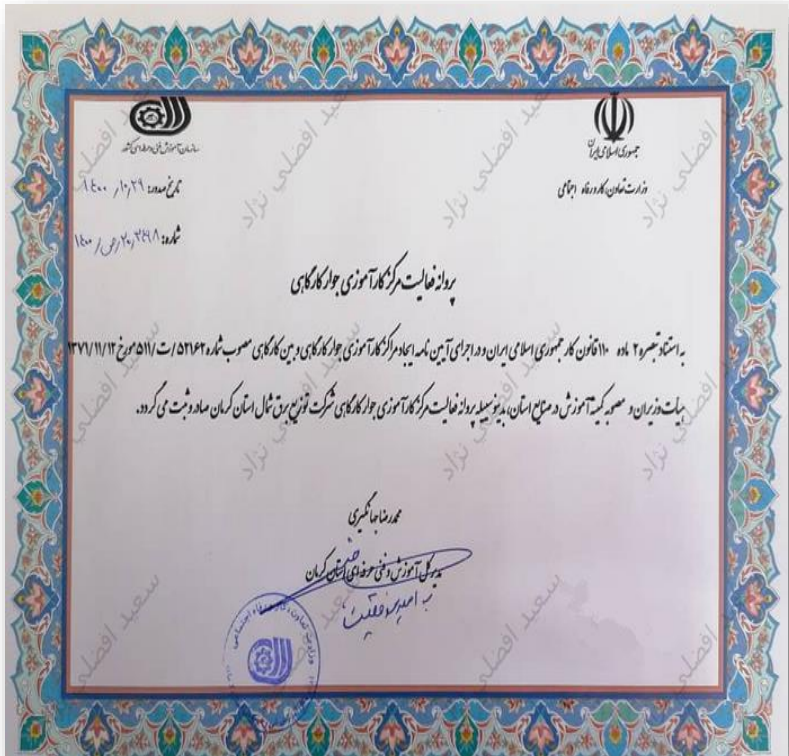 جمهوری اسلامی ایران
وزارت تعاون، کار و رفاه اجتماعی
سازمان آموزش فنی و حرفه ای کشور
تاریخ صدور: ۱۴۰۰/۱۰/۲۹
شماره:
پروانه فعالیت مرکز کارآموزی جوار کارگاهی
به استناد تبصره ۲ ماده ۱۱۰ قانون کار جمهوری اسلامی ایران و در اجرای آیین نامه ایجاد مراکز کارآموزی جوار کارگاهی و بین کارگاهی مصوب شماره ۵۲۱۶۲/ت/۵۱۱ مورخ ۱۳۷۱/۱۱/۱۲
هیأت وزیران و مصوبه کمیته آموزش در صنایع استان، بدینوسیله پروانه فعالیت مرکز کارآموزی جوار کارگاهی شرکت توزیع برق شمال استان کرمان صادر و ثبت می گردد.
محمدرضا جهانگیری
مدیر کل آموزش فنی و حرفه ای استان کرمان
به امید موفقیت
سعید افضلی نژاد